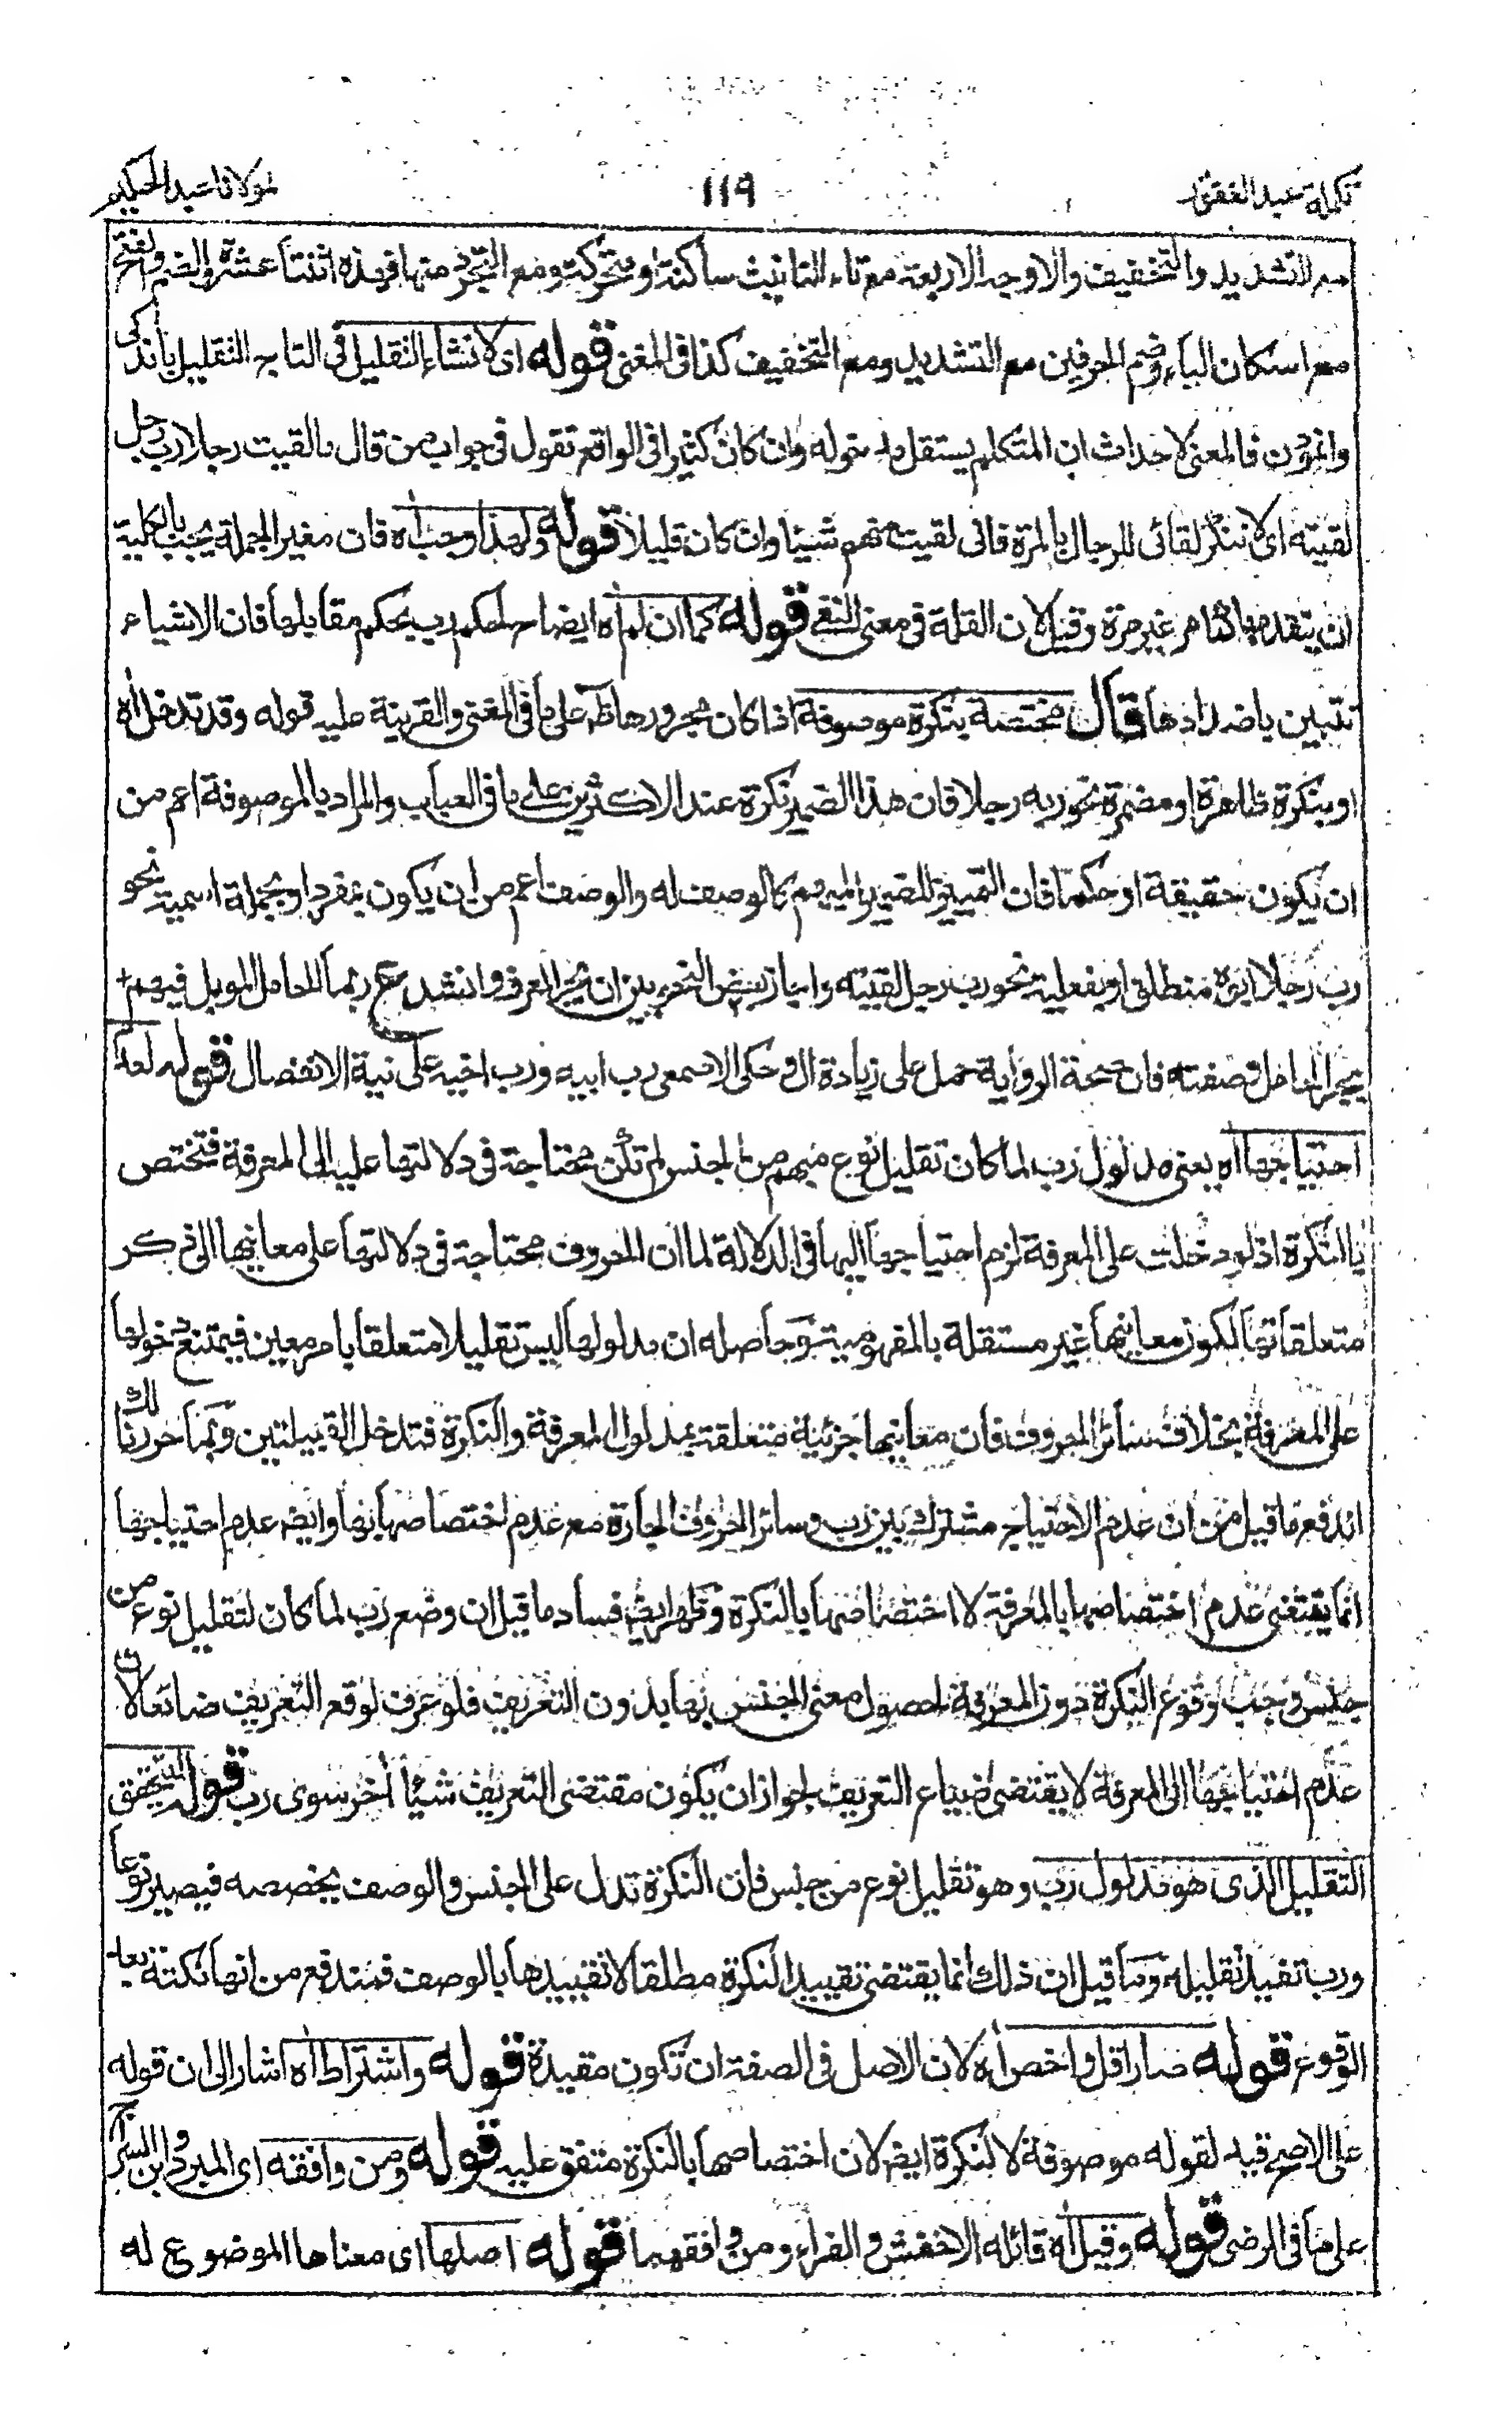 تكملة عبد الغفور
١١٩
لمولانا عبد الحكيم
مع التشديد والتخفيف والاوجه الاربعة مع تاء التانيث ساكنة او متحركة ومع التجرد منها فهذه اثنتا عشرة والضم والفتح
مع اسكان الباء وضم الحرفين مع التشديد ومع التخفيف كذا فى المغنى قوله اى لانشاء التقليل فى التاج التقليل باندكى
وانمودن فالمعنى لاحداث ان المتكلم يستقل مدخوله وان كان كثيرا فى الواقع تقول فى جواب من قال ما لقيت رجلا رب رجل
لقيته اى لا تنكر لقائى للرجال بالمرة فانى لقيت منهم شيئا وان كان قليلا قوله ولهذا وجب اه فان مغير الجملة يجب بالكلية
ان يتقدمها كما مر غير مرة وقيل لان القلة فى معنى النفى قوله كما ان لم اه ايضاح لحكم رب بحكم مقابلها فان الاشياء
تتبين باضدادها قال مختصة بنكرة موصوفة اذا كان مجرورها ظاهرا على ما فى المغنى والقرينة عليه قوله وقد تدخل اه
او بنكرة ظاهرة او مضمرة نحو ربه رجلا فان هذا الضمير نكرة عند الاكثرين على ما فى العباب والمراد بالموصوفة اعم من
ان يكون حقيقة او حكما فان التمييز للضمير المبهم كالوصف له والوصف اعم من ان يكون بمفرد او بجملة اسمية نحو
رب رجلا ابوه منطلق او بفعلية نحو رب رجل لقيته واجاز بعض النحويين ان يجر المعرف وانشد ع ربما الجامل الموبل فيهم +
بجر الجامل وصفته فان صحة الرواية حمل على زيادة ال وحكى الاصمعى رب ابيه ورب اخيه على نية الانفصال قوله لعدم
احتياجها اه يعنى مدلول رب لما كان تقليل نوع مبهم من الجنس لم تكن محتاجة فى دلالتها عليه الى المعرفة فتختص
بالنكرة اذ لو دخلت على المعرفة لزم احتياجها اليها فى الدلالة لما ان الحروف محتاجة فى دلالتها على معانيها الى ذكر
متعلقاتها لكون معانيها غير مستقلة بالمفهومية وحاصله ان مدلولها ليس تقليلا متعلقا بامر معين فيمتنع دخولها
على المعرفة بخلاف سائر الحروف فان معانيها جزئية متعلقة بمدلول المعرفة والنكرة فتدخل القبيلتين وبما حررنا لك
اندفع ما قيل من ان عدم الاحتياج مشترك بين رب وسائر الحروف الجارة مع عدم اختصاصها بها وايضا عدم احتياجها
انما يقتضى عدم اختصاصها بالمعرفة لا اختصاصها بالنكرة وظهر ايضا فساد ما قيل ان وضع رب لما كان لتقليل نوع من
جنس وجب وقوع النكرة دون المعرفة لحصول معنى الجنس بها بدون التعريف فلو عرف لوقع التعريف ضائعا لان
عدم احتياجها الى المعرفة لا يقتضى ضياع التعريف لجواز ان يكون مقتضى التعريف شيئا اخر سوى رب قوله ليتحقق
التقليل الذى هو مدلول رب وهو تقليل نوع من جنس فان النكرة تدل على الجنس والوصف يخصصه فيصير نوعا
ورب تفيد تقليله وما قيل ان ذلك انما يقتضى تقييد النكرة مطلقا لا تقييدها بالوصف فمندفع من انها نكتة بعد
الوقوع قوله صار اقل واخص اه لان الاصل فى الصفة ان تكون مقيدة قوله واشتراط اه اشار الى ان قوله
على الاصح قيد لقوله موصوفة لا لنكرة ايضا لان اختصاصها بالنكرة متفق عليه قوله ومن وافقه اى المبرد وابن السراج
على ما فى الرضى قوله وقيل اه قائله الاخفش والفراء ومن وافقهما قوله اصلها اى معناها الموضوع له